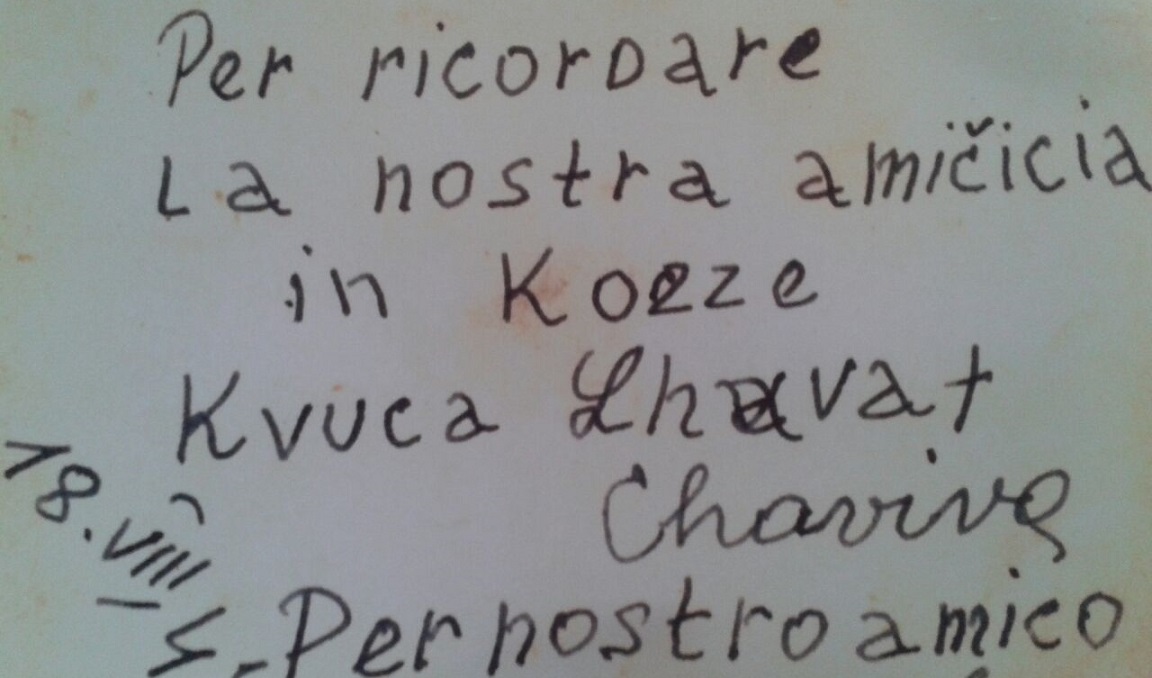 Per ricordare
La nostra amičicia
in Kozze
Kvuca Lhavat
Chaviva
18.VIII
Per nostro amico